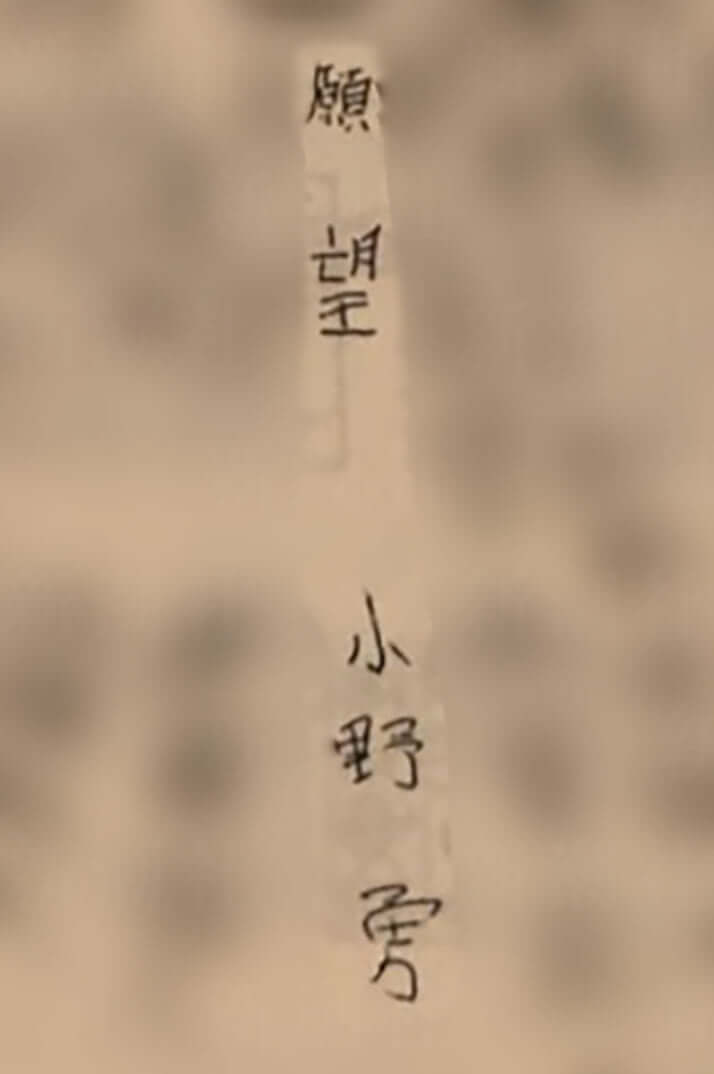 願望 小野勇